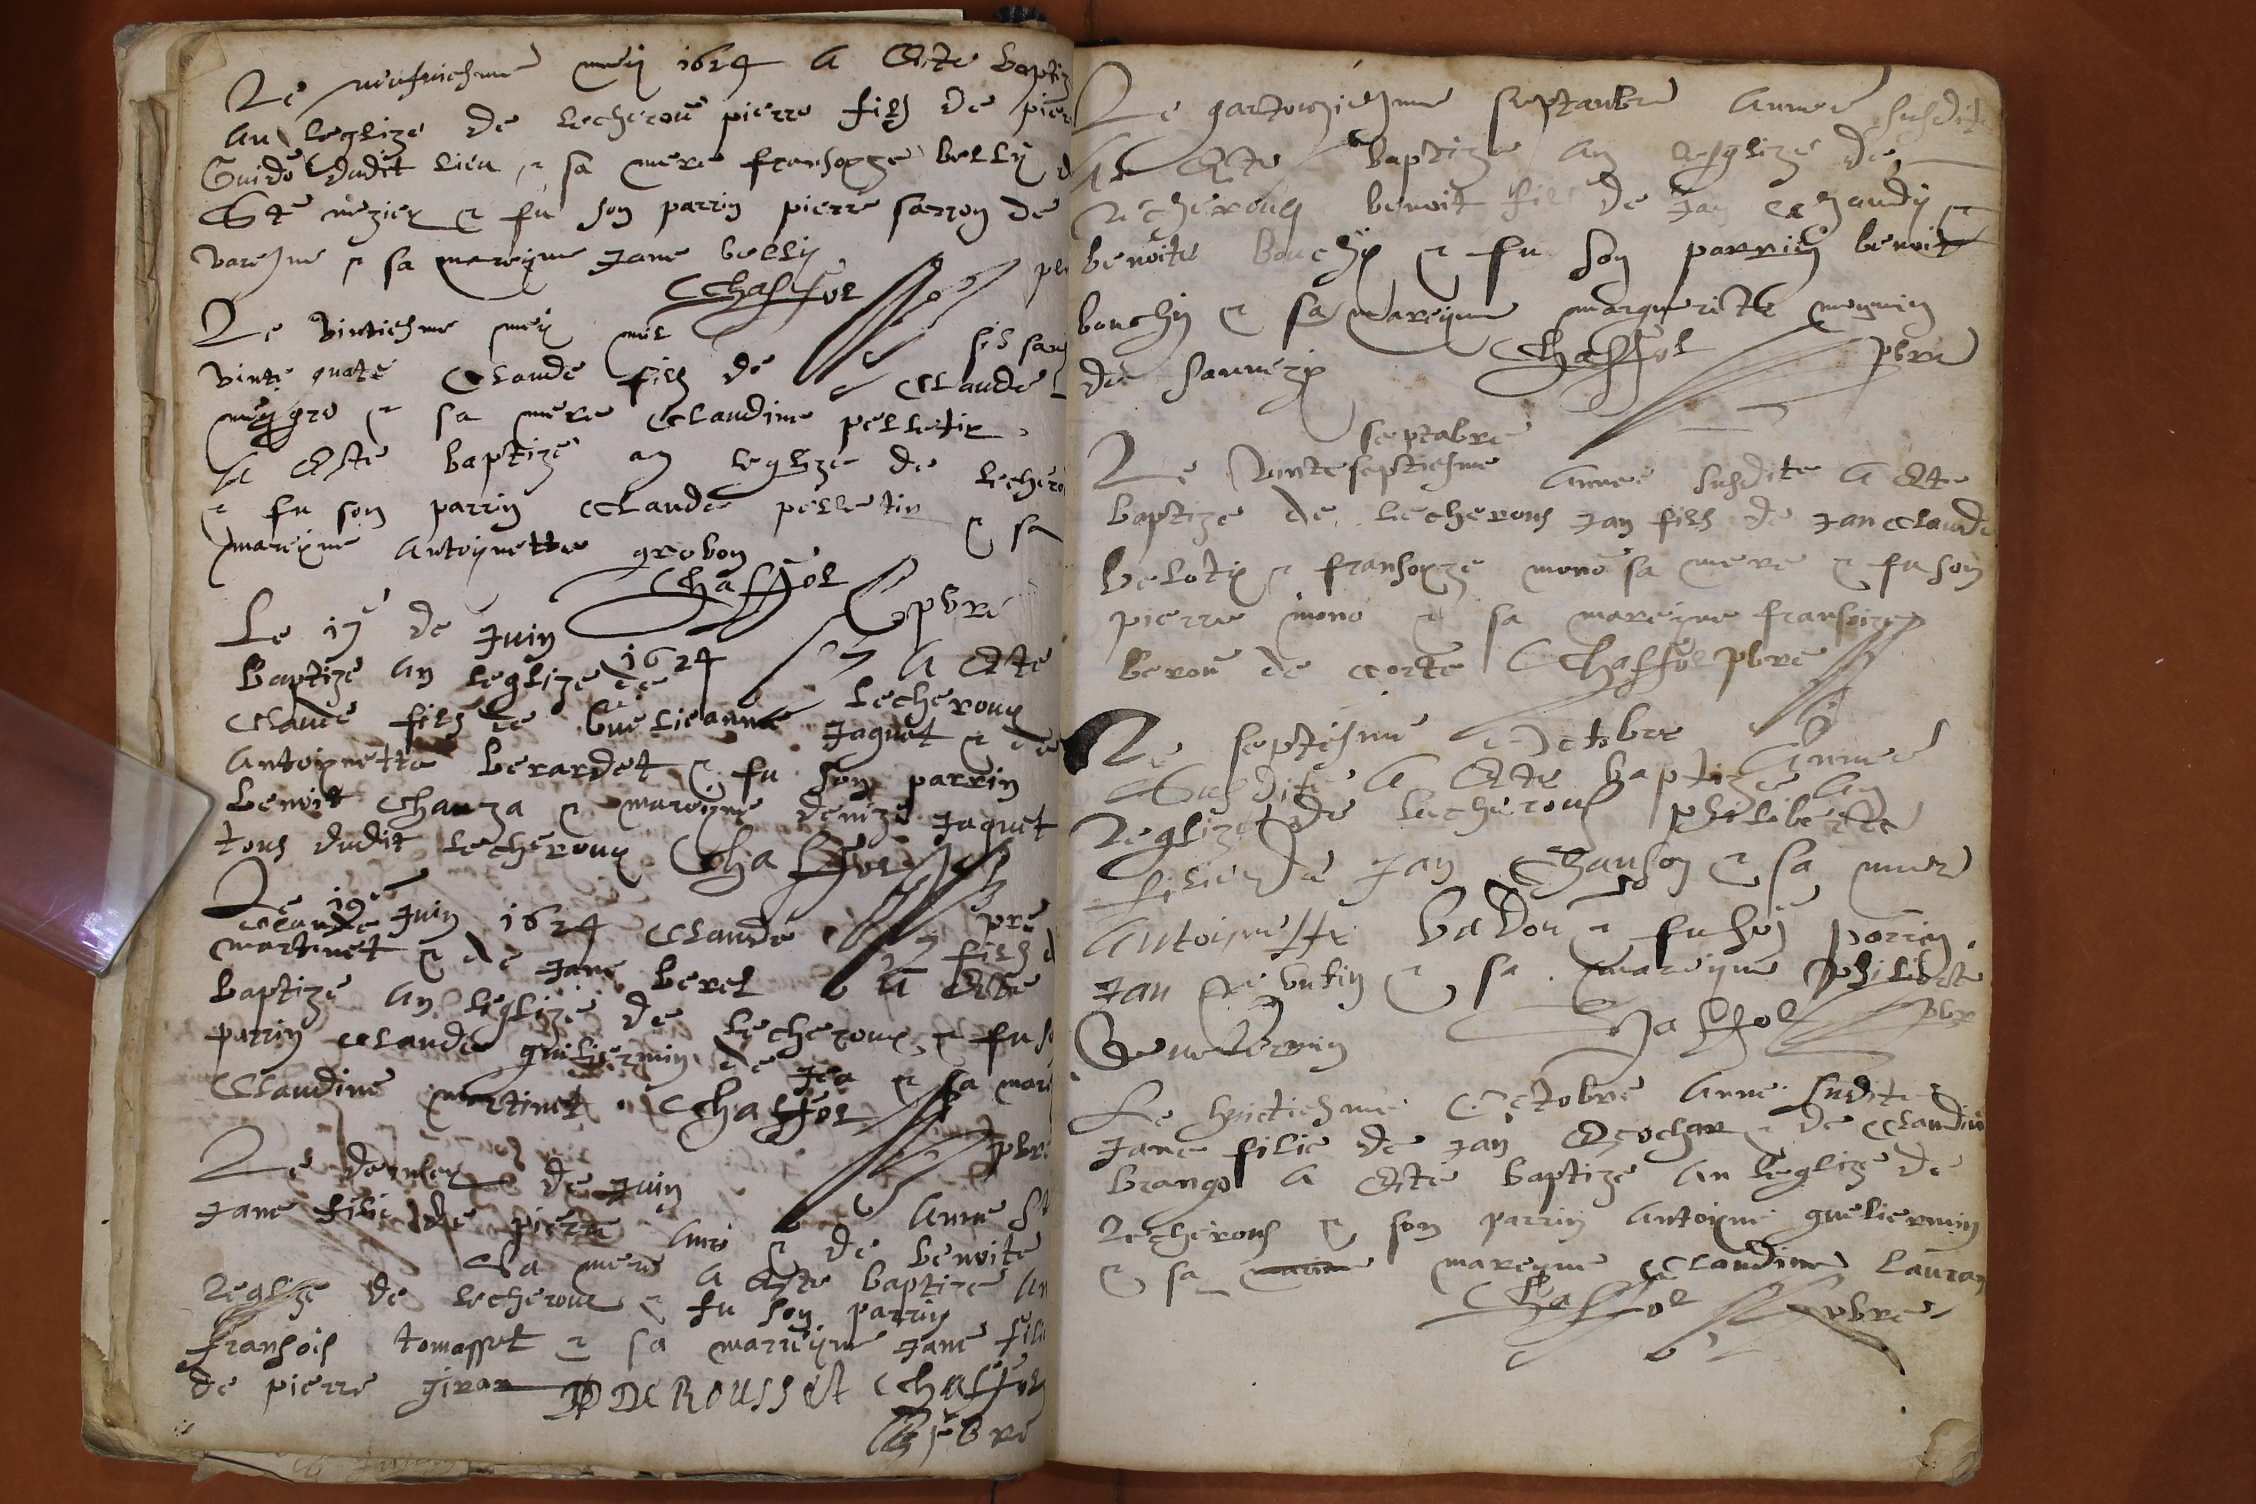 Le neufviesme mey 1624 A Este baptiz
an leglize de lecheroux pierre filz de pier
Guido dudit lieu et sa mere fransoyze belly
et fu son parrin pierre sarron de
varesne et sa mareyne Jane belly
Chaffol
Le vintiesme mey mil sis sans
vinte quate Claude filz de Claude
et sa mere Claudine pelletir
A Este baptize an leglize de lechero
et fu son parrin Claude pelletir et sa
mareyne Antoynette grobon
Chaffol pbre
Le de Juin 1624 A Este
baptize an leglize de lecheroux
Claude filz de Jaquet et de
Antoynette berardet et fu son parrin
benoit Chanza et mareyne denize Jaquet
tous dudit lecheroux Chaffol pre
Le 19e Juin 1624 Claude filz d
Claude
martinet et de Jane berel A Este
baptize an leglize de lecheroux et fu so
parrin Claude guiliermin de et sa mare
Claudine martinet Chaffol pbre
Le dernier de Juin Anne
Jane filie de pierre et de benoite
sa mere A Este baptize An
leglize de lecheroux et fu son parrin
fransois tomasset et sa mareyne Jane filie
de pierre girar DE ROUSSET Chaffol
pbre
Le qartorziesme septanbre Annee susdite
At Este baptize an lesglize de
lecheroux benoit filz de Jan et
benoite bouchy et fu son parrin benoit
bouchy et sa mareyne marguerite
de sanmezy Chaffol pbre
septabre
Le vinteseptiesme Annee susdite A Este
baptize de lecheroux Jan filz de Jan Claude
beloty et fransoyze mono sa mere et fu son
pierre mono et sa mareyne fransoize
berou de corte Chaffol pbre
Le septiesme Octobre Annee
susdite A Este baptize an
leglize de lecheroux philiberte
filie de Jan Chanson et sa mere
Antoynette badou et fu son parrin
Jan et sa mareyne philiberte
Chaffol pbre
Le huictiesme Octobre Anne sudite
Jane filie de Jan Cochar et de Claudine
brango A Este baptize an leglize de
lecherous et son parrin Antoyne gueliermin
et sa mareyne Claudine lauran
Chaffol pbre